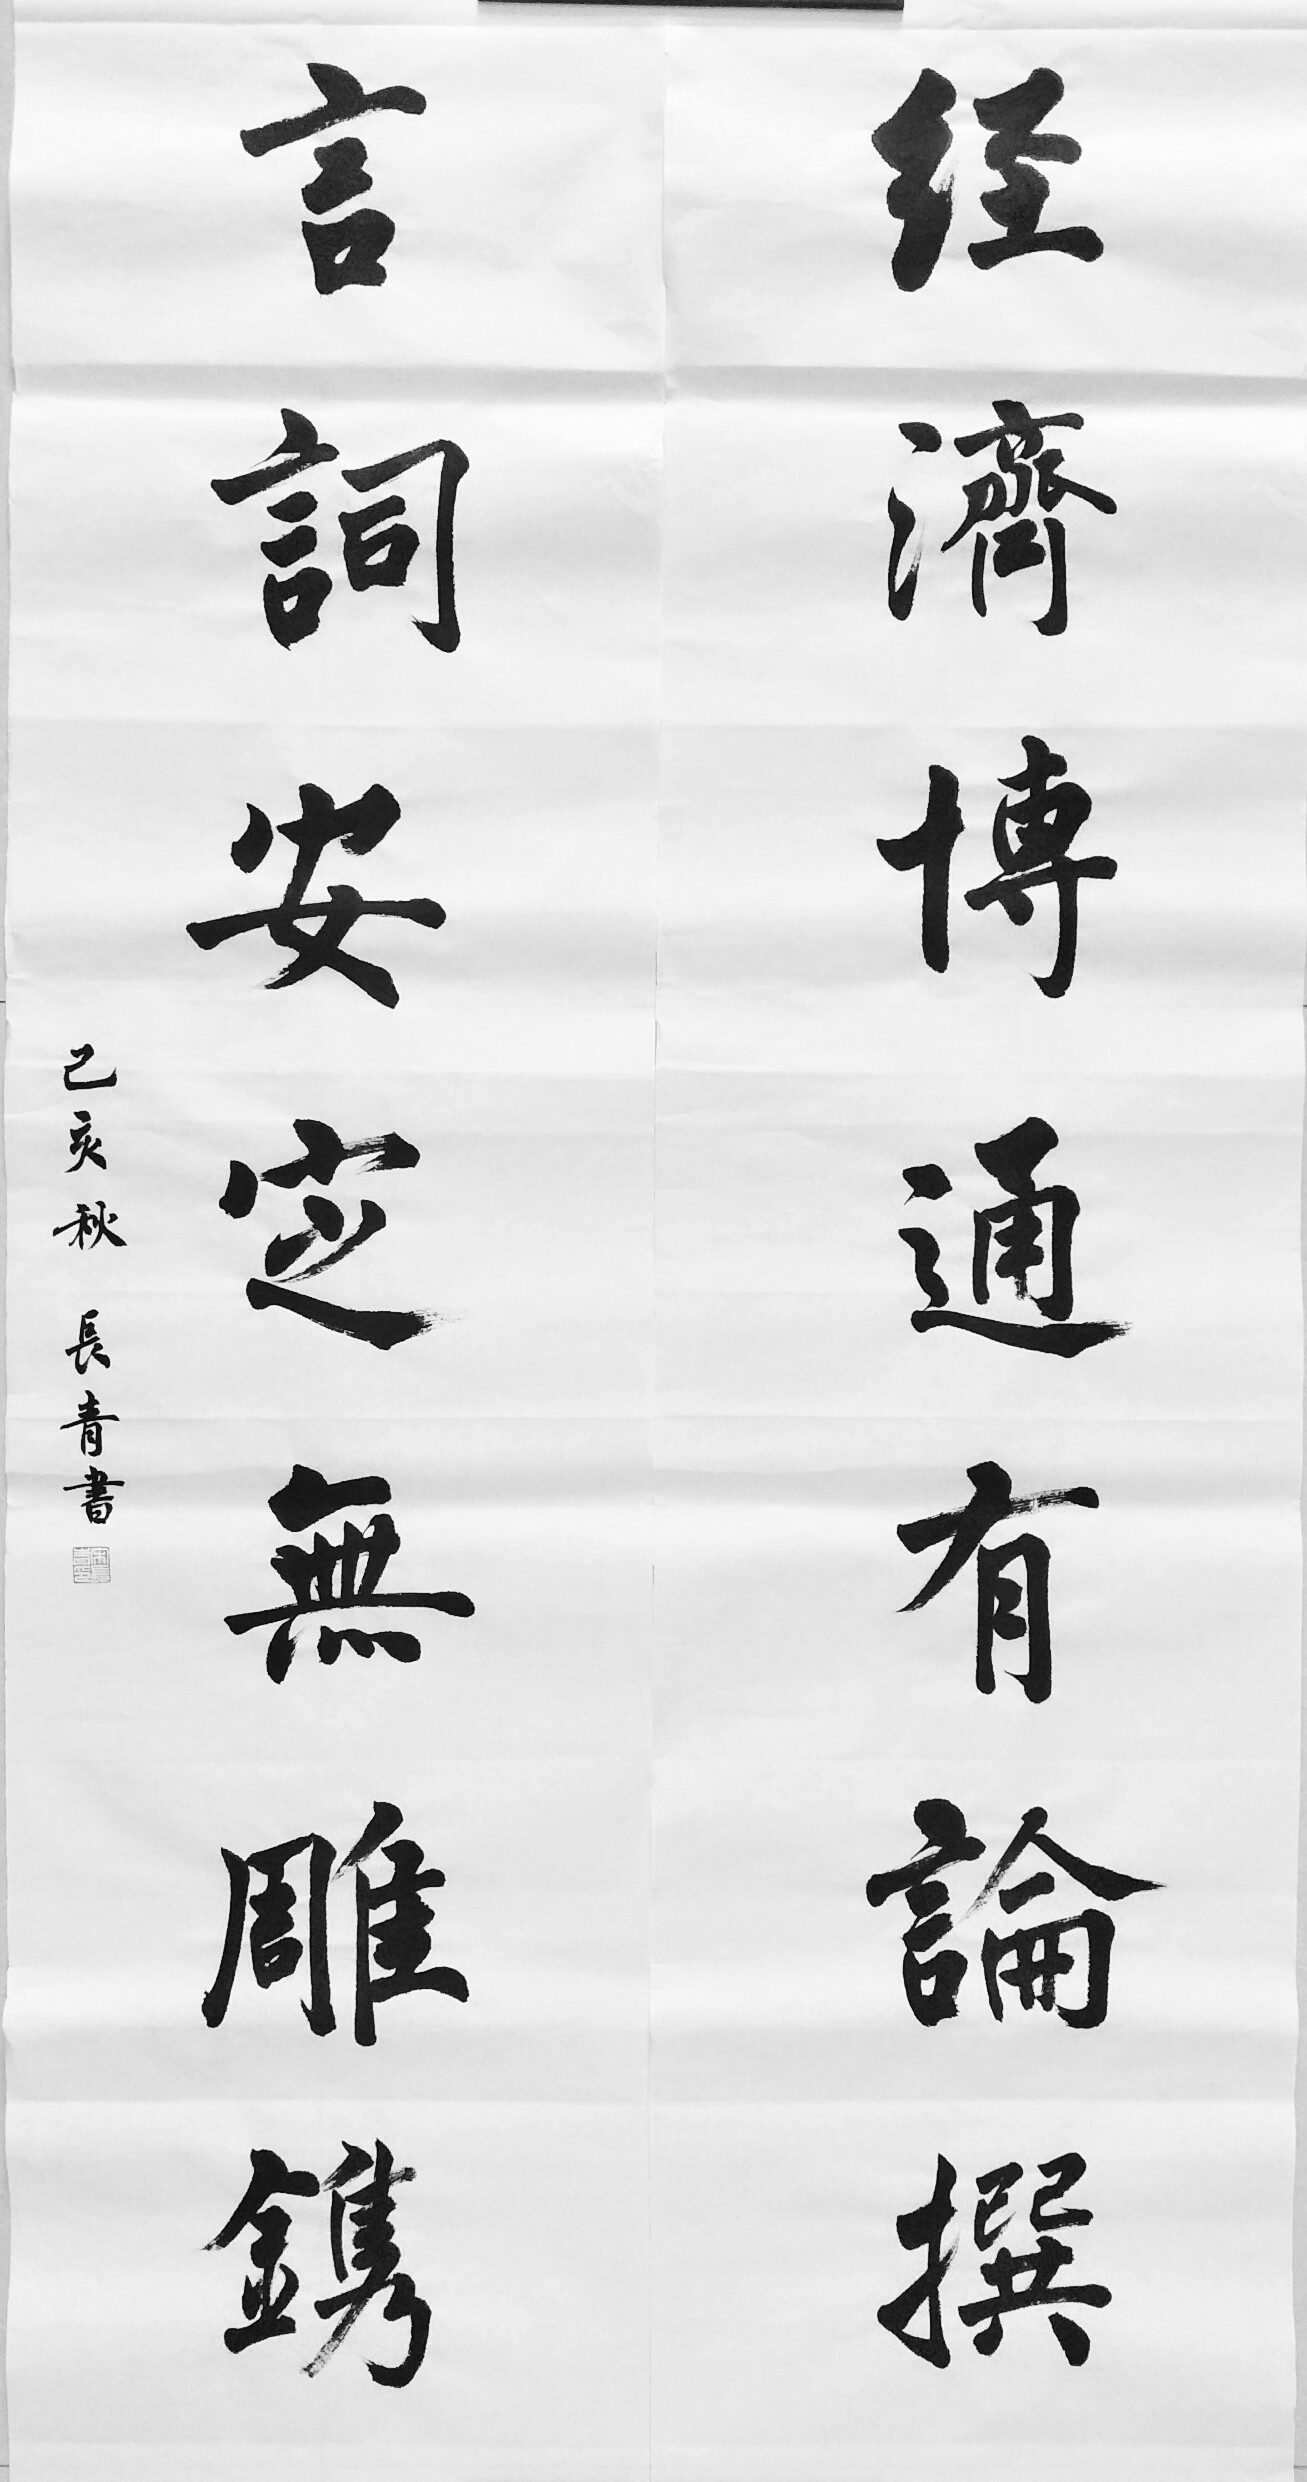 经濟博通有論撰
言詞安定無雕鐫
己亥秋 長青書